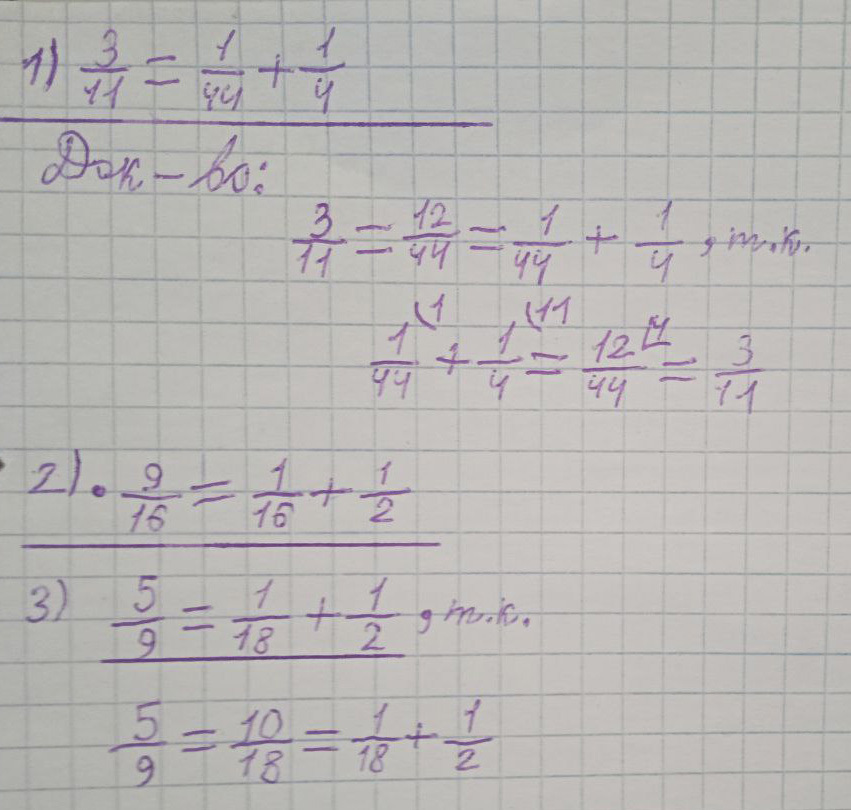 1) 3/11 = 1/44 + 1/4
Док-во:
3/11 = 12/44 = 1/44 + 1/4, т.к.
1/44 (1 + 1/4 (11 = 12/44 [4 = 3/11
2). 9/16 = 1/16 + 1/2
3) 5/9 = 1/18 + 1/2, т.к.
5/9 = 10/18 = 1/18 + 1/2